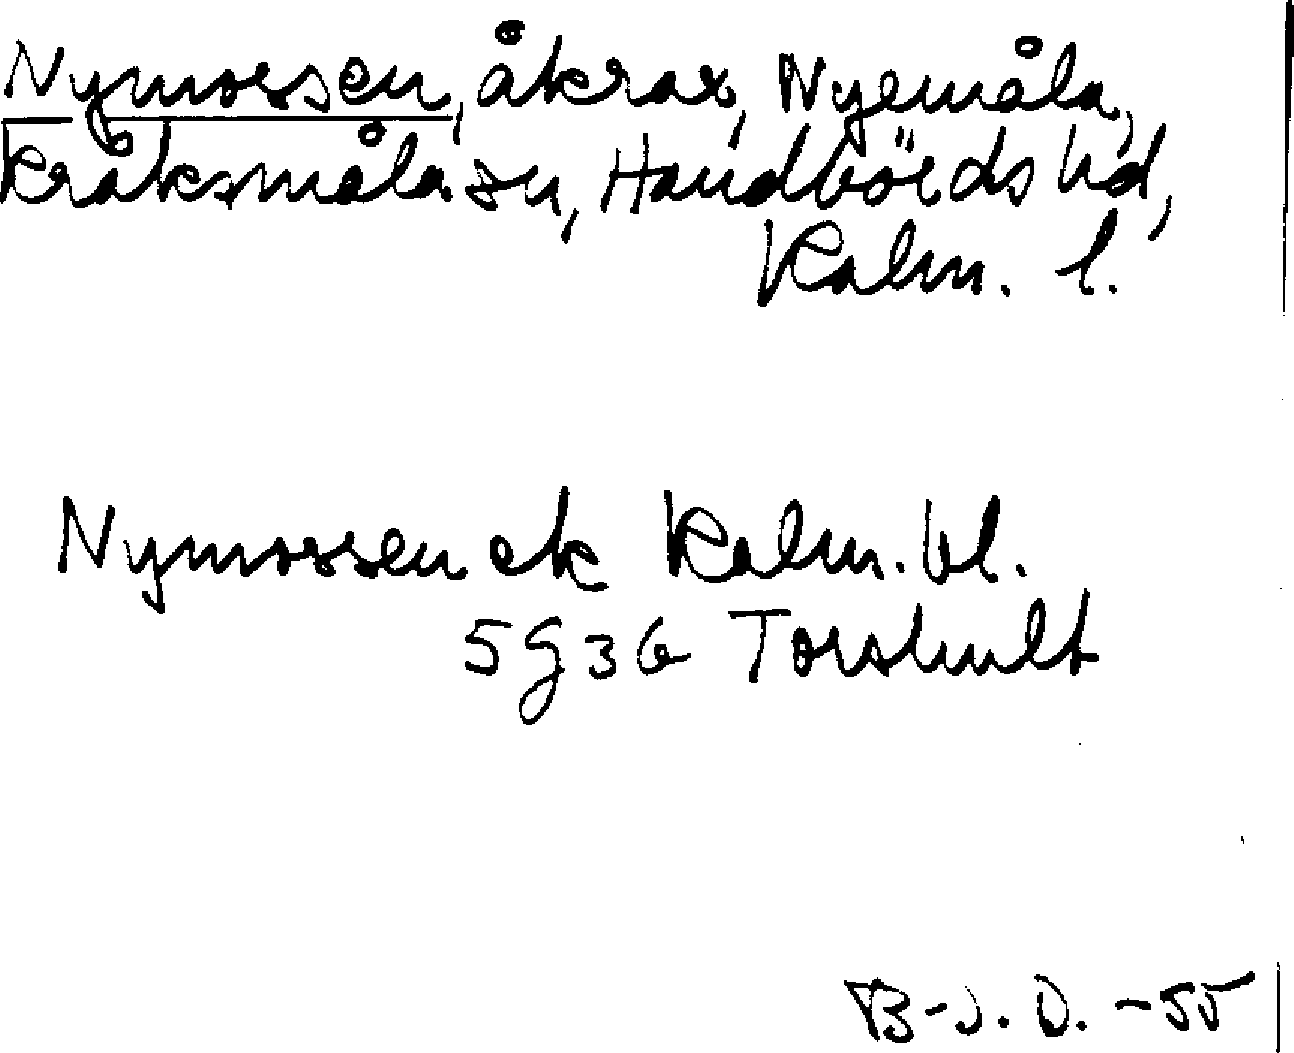 Nymossen, åkrar, Nyemåla,
Kråksmåla sn, Handbörds hd,
Kalm. l.
Nymossen ek Kalm. bl.
5g36 Torshult
B-J. D. -55